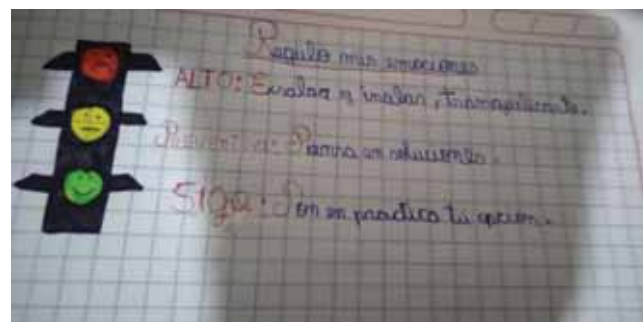 Regulo mis emociones
ALTO: Exalar y inalar, tranquilizarte.
Preventiva: Piensa en soluciones.
SIGA: Pon en practica tú opcion.